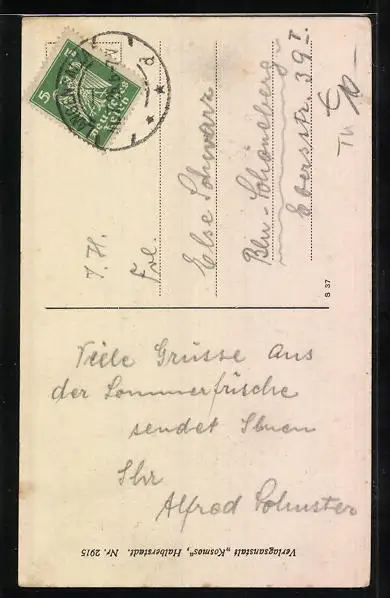 5
d
I. H.
Frl.
Else Schwarz
Bln-Schöneberg
Ebersstr. 39 I.
Th
S 37
Viele Grüsse aus
der Sommerfrische
sendet Ihnen
Ihr
Alfred Schuster
Verlagsanstalt „Kosmos“, Halberstadt. Nr. 2915